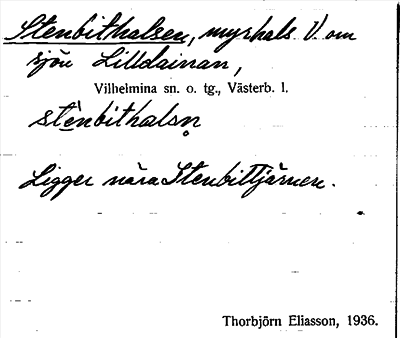 Stenbithalsen, myrhals V. om
sjön Lilldainan,
Vilhelmina sn. o. tg., Västerb. l.
stènbithalsn̥
Ligger nära Stenbittjärnen.
Thorbjörn Eliasson, 1936.